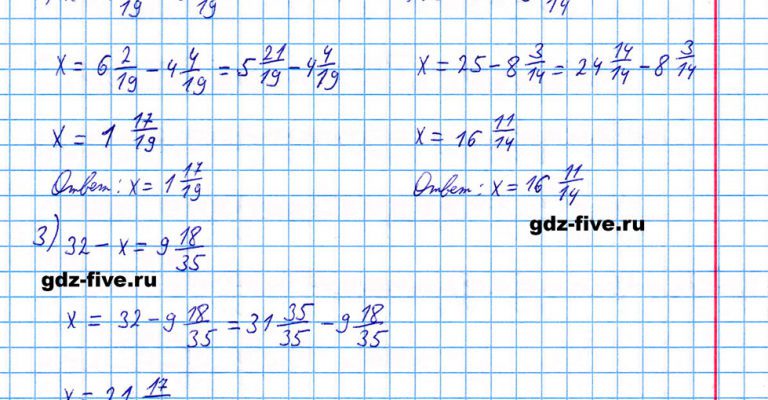 19 19
x = 6 2/19 - 4 4/19 = 5 21/19 - 4 4/19
x = 1 17/19
Ответ: x = 1 17/19
14
x = 25 - 8 3/14 = 24 14/14 - 8 3/14
x = 16 11/14
Ответ: x = 16 11/14
gdz-five.ru
3) 32 - x = 9 18/35
gdz-five.ru
x = 32 - 9 18/35 = 31 35/35 - 9 18/35
x = 21 17